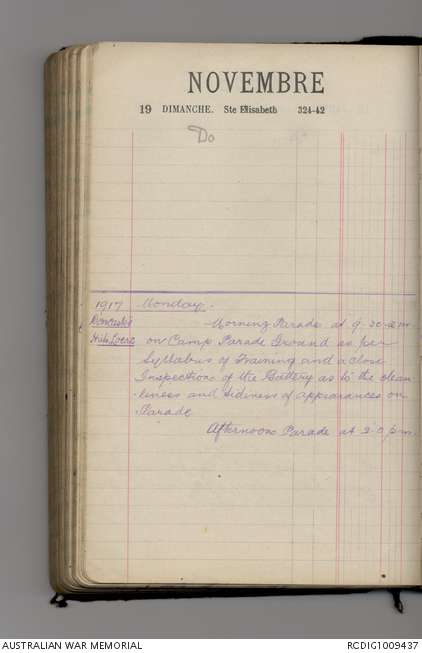 NOVEMBRE
19 DIMANCHE. Ste Elisabeth 324-42
Do
1917 Monday.
Doncaster Morning Parade at 9-30 a m
Huts Locre on Camp Parade Ground as per
Syllabus of Training and a close
Inspection of the Battery as to the clean
-liness and tidiness of appearances on
Parade
Afternoon Parade at 2.0 pm.
AUSTRALIAN WAR MEMORIAL RCDIG1009437